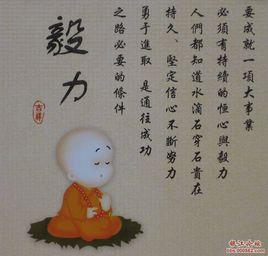 要成就一項大事業
必須有持續的恒心與毅力
人們都知道水滴石穿貴在
持久、堅定信心不斷努力
勇于進取 是通往成功
之路必要的條件
毅力
吉祥